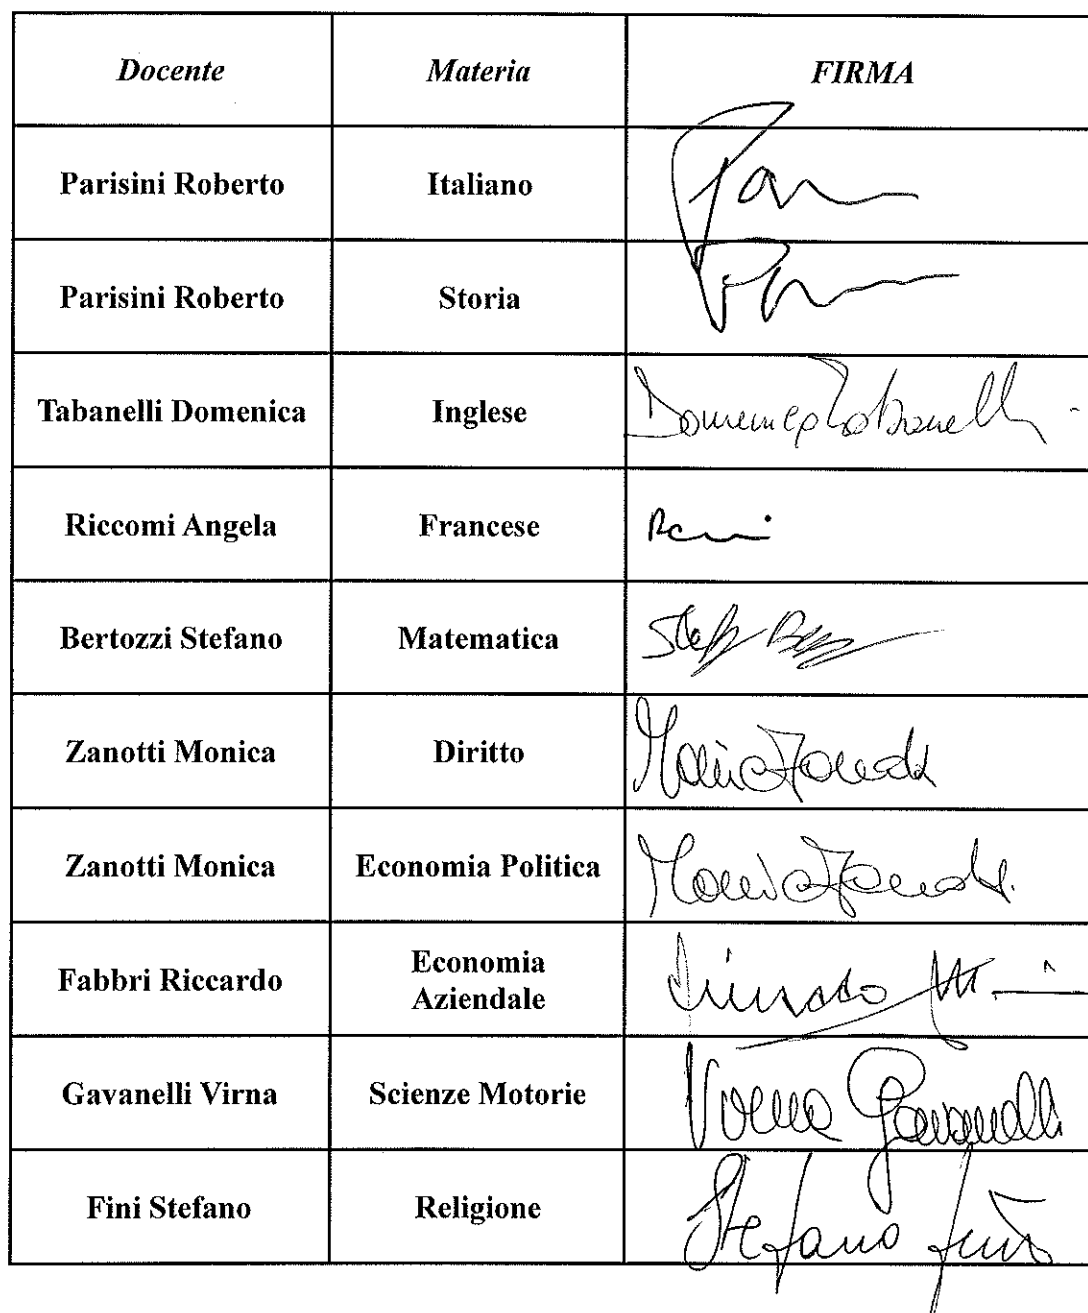 Docente Materia FIRMA
Parisini Roberto Italiano
Parisini Roberto Storia
Tabanelli Domenica Inglese Domenica Tabanelli
Riccomi Angela Francese
Bertozzi Stefano Matematica
Zanotti Monica Diritto Monica Zanotti
Zanotti Monica Economia Politica Monica Zanotti
Fabbri Riccardo Economia
Aziendale
Gavanelli Virna Scienze Motorie Virna Gavanelli
Fini Stefano Religione Stefano Fini